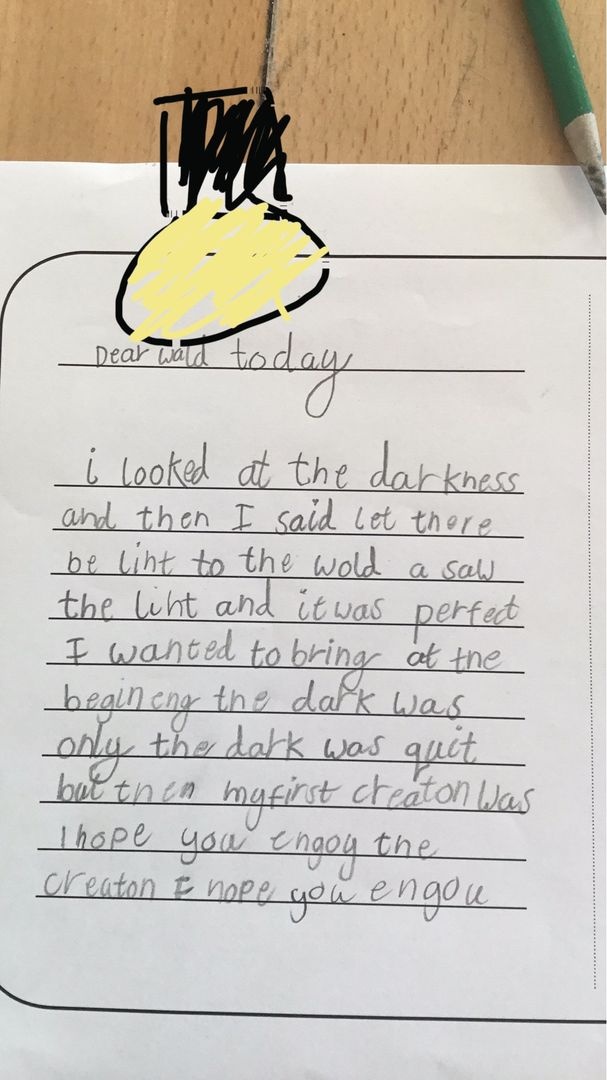 Dear wald today
i looked at the darkness
and then I said let there
be liht to the wold a saw
the liht and it was perfect
I wanted to bring at the
begineng the dark was
only the dark was quit
but then my first creaton was
I hope you engoy the
creaton I hope you engou